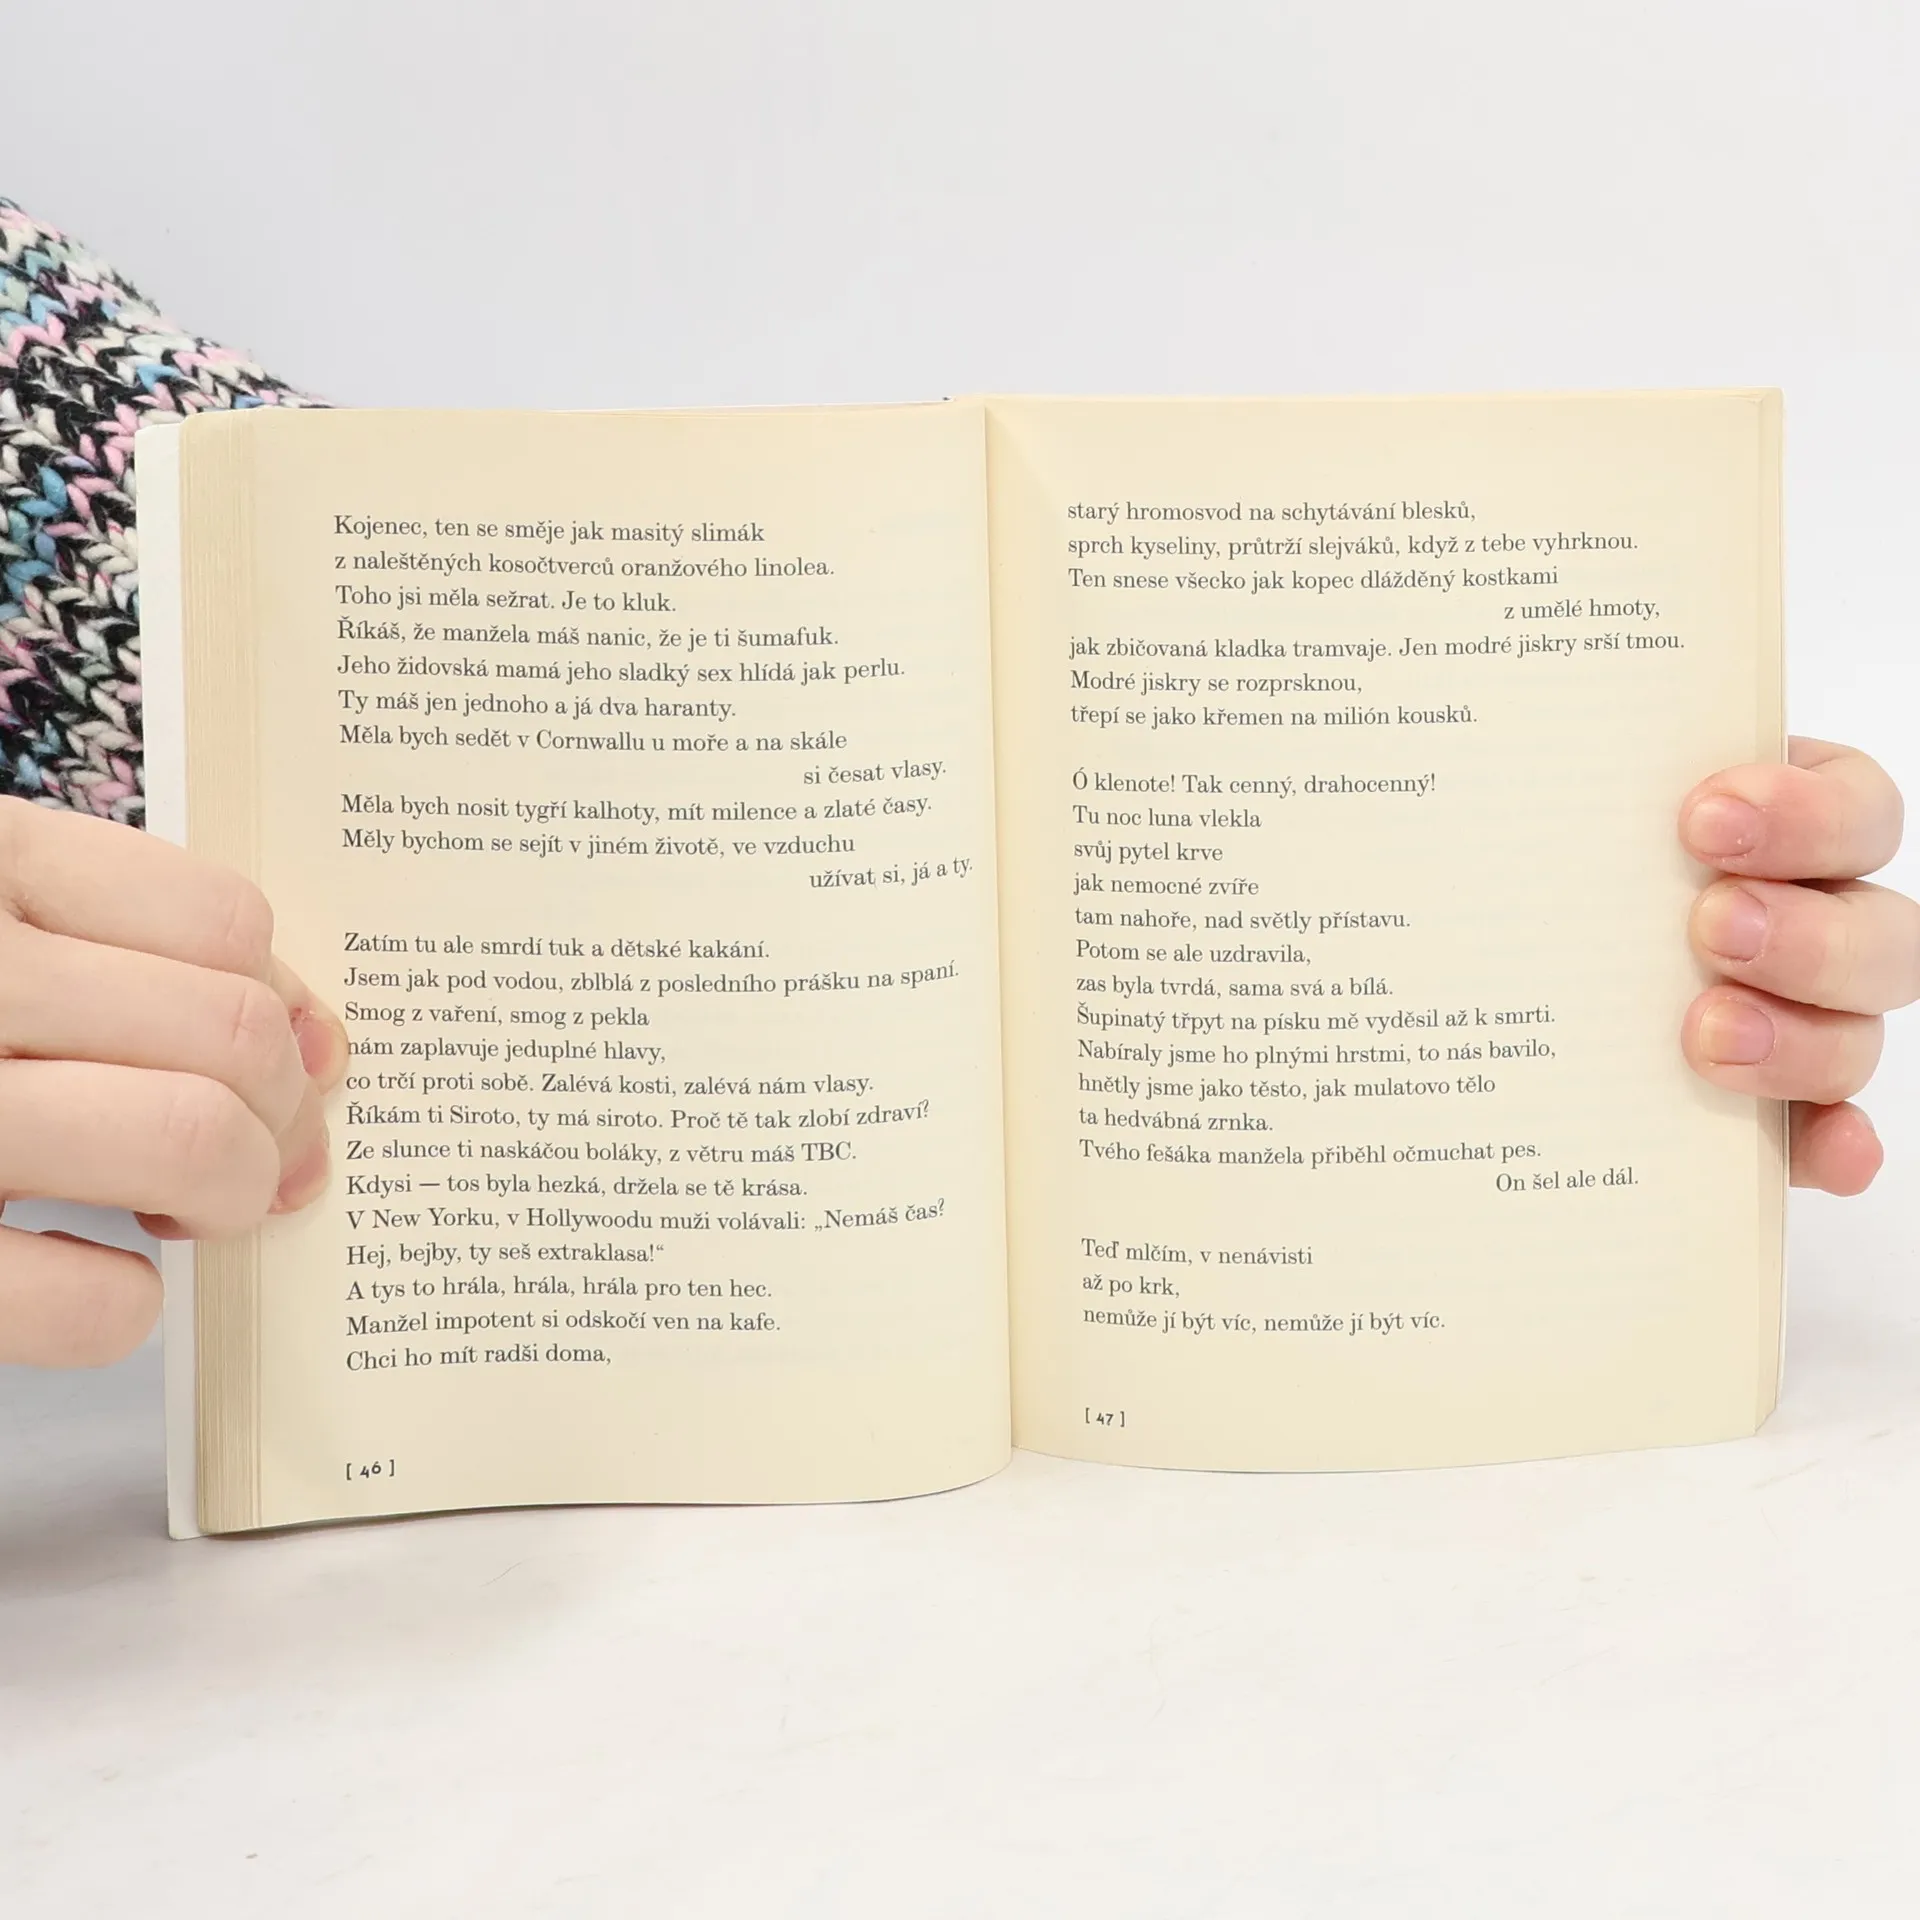 Kojenec, ten se směje jak masitý slimák
z naleštěných kosočtverců oranžového linolea.
Toho jsi měla sežrat. Je to kluk.
Říkáš, že manžela máš nanic, že je ti šumafuk.
Jeho židovská mamá jeho sladký sex hlídá jak perlu.
Ty máš jen jednoho a já dva haranty.
Měla bych sedět v Cornwallu u moře a na skále
si česat vlasy.
Měla bych nosit tygří kalhoty, mít milence a zlaté časy.
Měly bychom se sejít v jiném životě, ve vzduchu
užívat si, já a ty.
Zatím tu ale smrdí tuk a dětské kakání.
Jsem jak pod vodou, zblblá z posledního prášku na spaní.
Smog z vaření, smog z pekla
nám zaplavuje jeduplné hlavy,
co trčí proti sobě. Zalévá kosti, zalévá nám vlasy.
Říkám ti Siroto, ty má siroto. Proč tě tak zlobí zdraví?
Ze slunce ti naskáčou boláky, z větru máš TBC.
Kdysi — tos byla hezká, držela se tě krása.
V New Yorku, v Hollywoodu muži volávali: „Nemáš čas?
Hej, bejby, ty seš extraklasa!“
A tys to hrála, hrála, hrála pro ten hec.
Manžel impotent si odskočí ven na kafe.
Chci ho mít radši doma,
[ 46 ]
starý hromosvod na schytávání blesků,
sprch kyseliny, průtrží slejváků, když z tebe vyhrknou.
Ten snese všecko jak kopec dlážděný kostkami
z umělé hmoty,
jak zbičovaná kladka tramvaje. Jen modré jiskry srší tmou.
Modré jiskry se rozprsknou,
třepí se jako křemen na milión kousků.
Ó klenote! Tak cenný, drahocenný!
Tu noc luna vlekla
svůj pytel krve
jak nemocné zvíře
tam nahoře, nad světly přístavu.
Potom se ale uzdravila,
zas byla tvrdá, sama svá a bílá.
Šupinatý třpyt na písku mě vyděsil až k smrti.
Nabíraly jsme ho plnými hrstmi, to nás bavilo,
hnětly jsme jako těsto, jak mulatovo tělo
ta hedvábná zrnka.
Tvého fešáka manžela přiběhl očmuchat pes.
On šel ale dál.
Teď mlčím, v nenávisti
až po krk,
nemůže jí být víc, nemůže jí být víc.
[ 47 ]